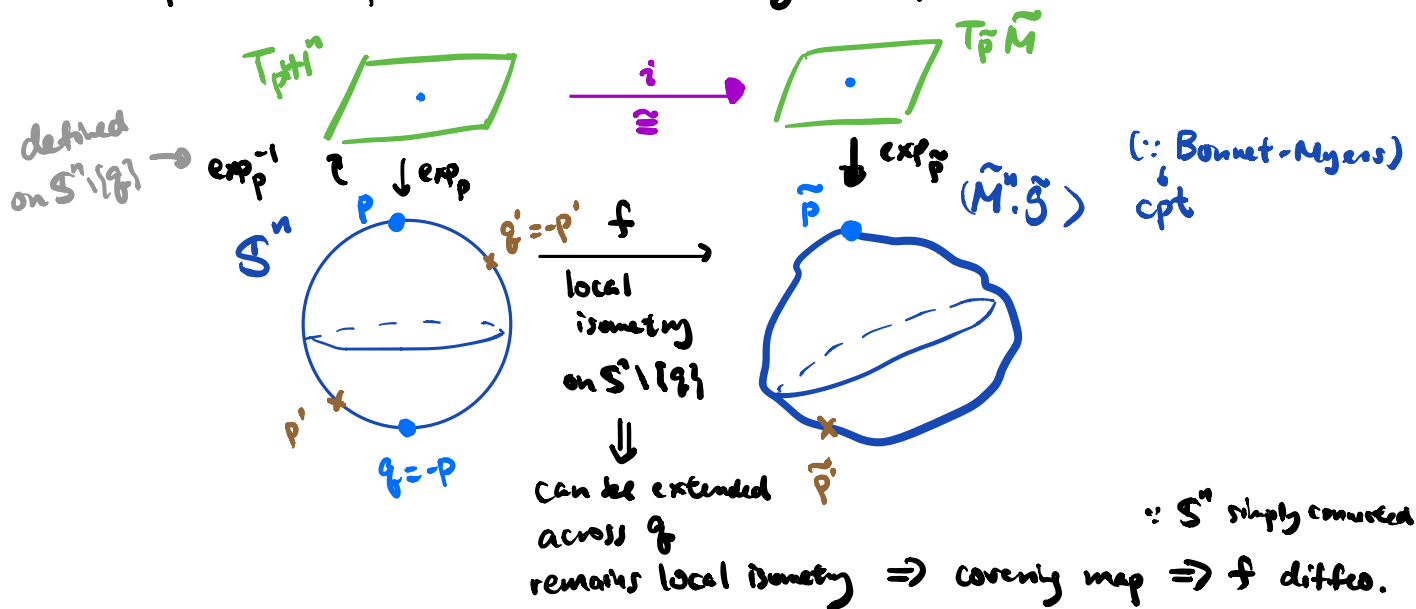 T_p ℍ^n
i
≅
T_p̃ M̃
defined
on 𝕊^n\{q}
exp_p^{-1}
exp_p
exp_p̃
(∵ Bonnet-Myers)
cpt
(M̃^n, g̃)
p
p̃
𝕊^n
q' = -p'
f
local
isometry
on 𝕊^n\{q}
p'
q = -p
p̃'
⇓
can be extended
across q
∵ 𝕊^n simply connected
remains local isometry ⇒ covering map ⇒ f diffeo.